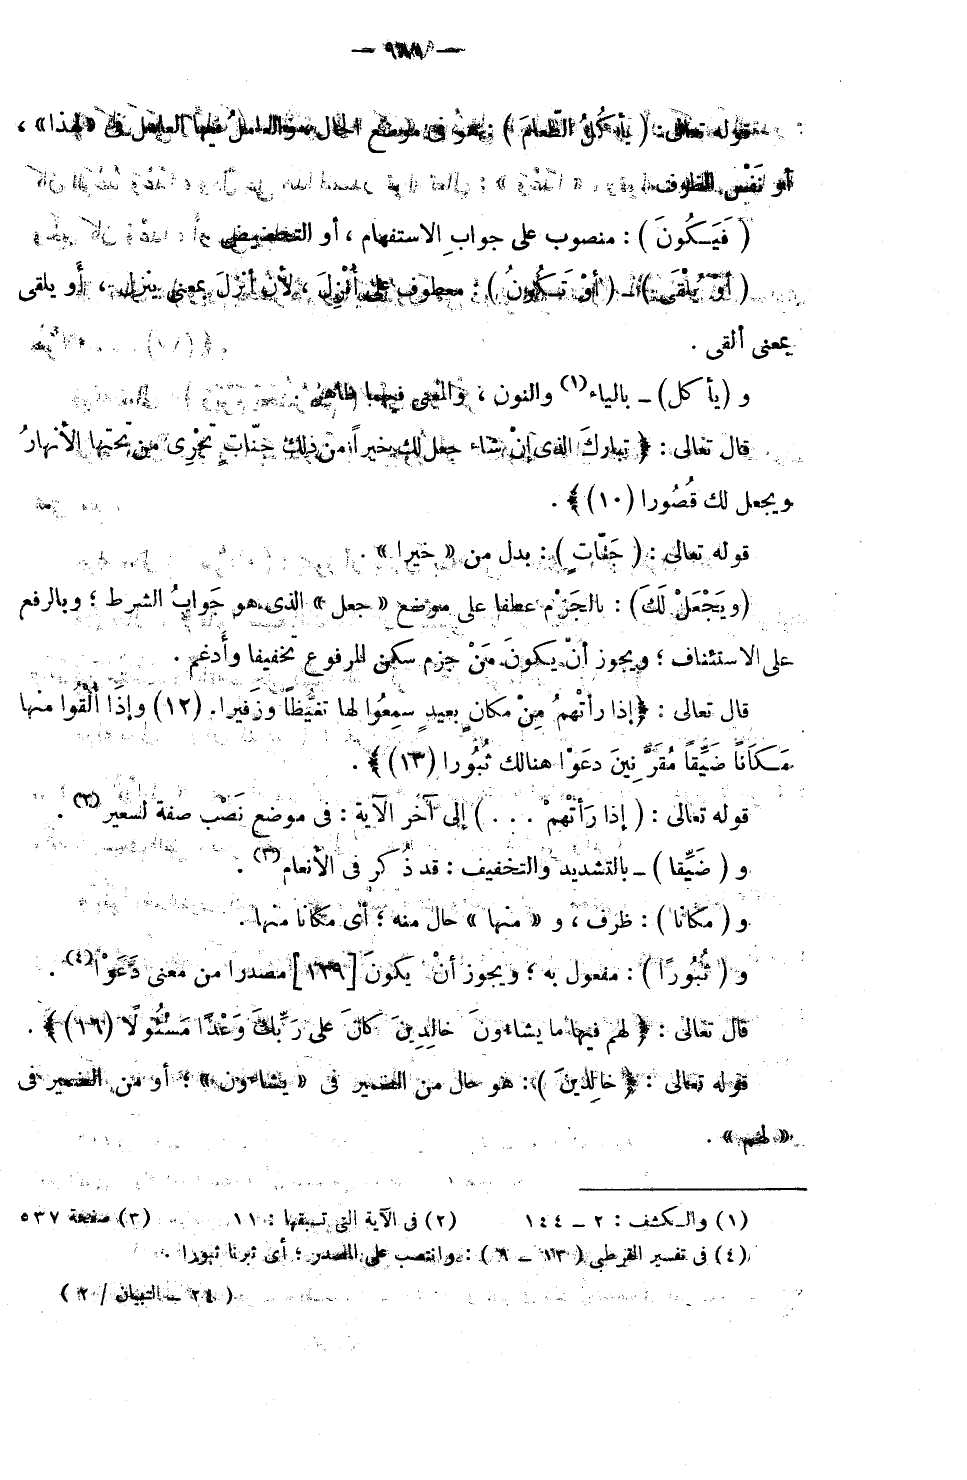 قوله تعالى : ( يأكُلُ الطَّعامَ ) : هُو فى موضع الحال ، والعاملُ فيها العامل فى «لهذا» ،
أو نَفْس الظروف .
( فَيَـكُونَ ) : منصوب على جوابِ الاستفهام ، أو التحضيض .
( أوْ يُلْقَى ) ــ ( أوْ تَـكُونُ ) : معطوف على أُنْزِلَ ، لأن أنزلَ بمعنى ينزل ، أَو يلقى
بمعنى ألقى .
و (يأكل) ــ بالياء (١) والنون ، والمعنى فيهما ظاهر .
قال تعالى : ﴿ تباركَ الذى إنْ شاء جعل لك خيراً من ذلك جنّاتٍ تَجْرِى من تحتها الأنهارُ
ويجعل لك قُصُورا (١٠) ﴾ .
قوله تعالى : ( جَنّاتٍ ) : بدل من « خيرا » .
(ويَجْعَلْ لَكَ) : بالجَزْم عطفا على موضع « جعل » الذى هو جَوابُ الشرط ؛ وبالرفع
على الاستئناف ؛ ويجوز أنْ يـكونَ مَنْ جزم سكن المرفوع تخفيفا وأَدغم .
قال تعالى : ﴿إذا رأتْهمُ مِنْ مكانٍ بعيدٍ سمِعُوا لها تغيُّظاً وزَفيرا. (١٢) وإذَا أُلْقُوا منها
مَـكَاناً ضَيِّقاً مُقَرَّنِينَ دعَوْا هنالك ثُبُورا (١٣) ﴾ .
قوله تعالى : ( إذا رَأتْهمْ . . . ) إلى آخر الآية : فى موضع نَصْب صفة لسعير (٢) .
و ( ضَيِّقا ) ــ بالتشديد والتخفيف : قد ذُكر فى الأنعام (٣) .
و ( مكانا ) : ظرف ، و « منها » حال منه ؛ أى مكانا منها .
و ( ثُبُورًا ) : مفعول به ؛ ويجوز أنْ يكونَ [١٣٩] مصدرا من معنى دَعَوْا (٤) .
قال تعالى : ﴿ لهم فيها ما يشاءونَ خالِدِينَ كانَ على رَبِّكَ وَعْدًا مَسْئُولًا (١٦) ﴾ .
قوله تعالى : ( خالِدينَ ) : هو حال من الضمير فى « يشاءون » ؛ أو من الضمير فى
« لهم » .
(١) والـكشف : ٢ ــ ١٤٤ (٢) فى الآية التى تسبقها : ١١ (٣) صفحة ٥٣٧
(٤) فى تفسير القرطبى ( ١٣ ــ ٩ ) : وانتصب على المصدر ؛ أى ثبرنا ثبورا .
( ٢٤ ــ التبيان / ٢ )